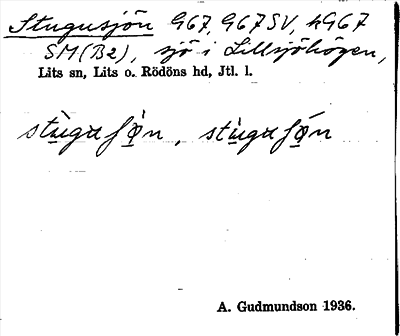 Stugusjön 967, 967 SV, h967
SM(B2), sjö i Lillsjöhögen,
Lits sn, Lits o. Rödöns hd, Jtl. l.
A. Gudmundson 1936.